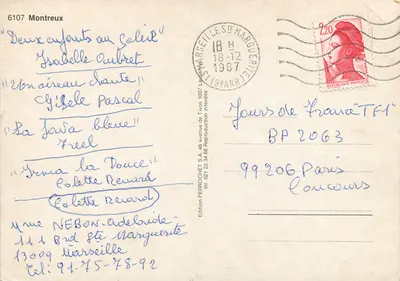 6107 Montreux
"Deux enfants au Soleil"
Isabelle Aubret
"Un oiseau chante"
Gisèle Pascal
"La Java bleue"
Freel
"Irma la Douce"
Colette Renard
Colette Renard
Mme NEBON-Adelaïde-
111 Brd Ste Marguerite
13009 Marseille
Tel: 91-75-78-92
Edition PERROCHET S.A. 46 avenue de Tivoli 1007
tél. 021 22 34 66 Reproduction interdite
MARSEILLE Ste MARGUERITE
18 H
18-12
1987
(9e ARRt)
2,20
Jours de France "TF1"
BP 2063
99206 Paris
Concours